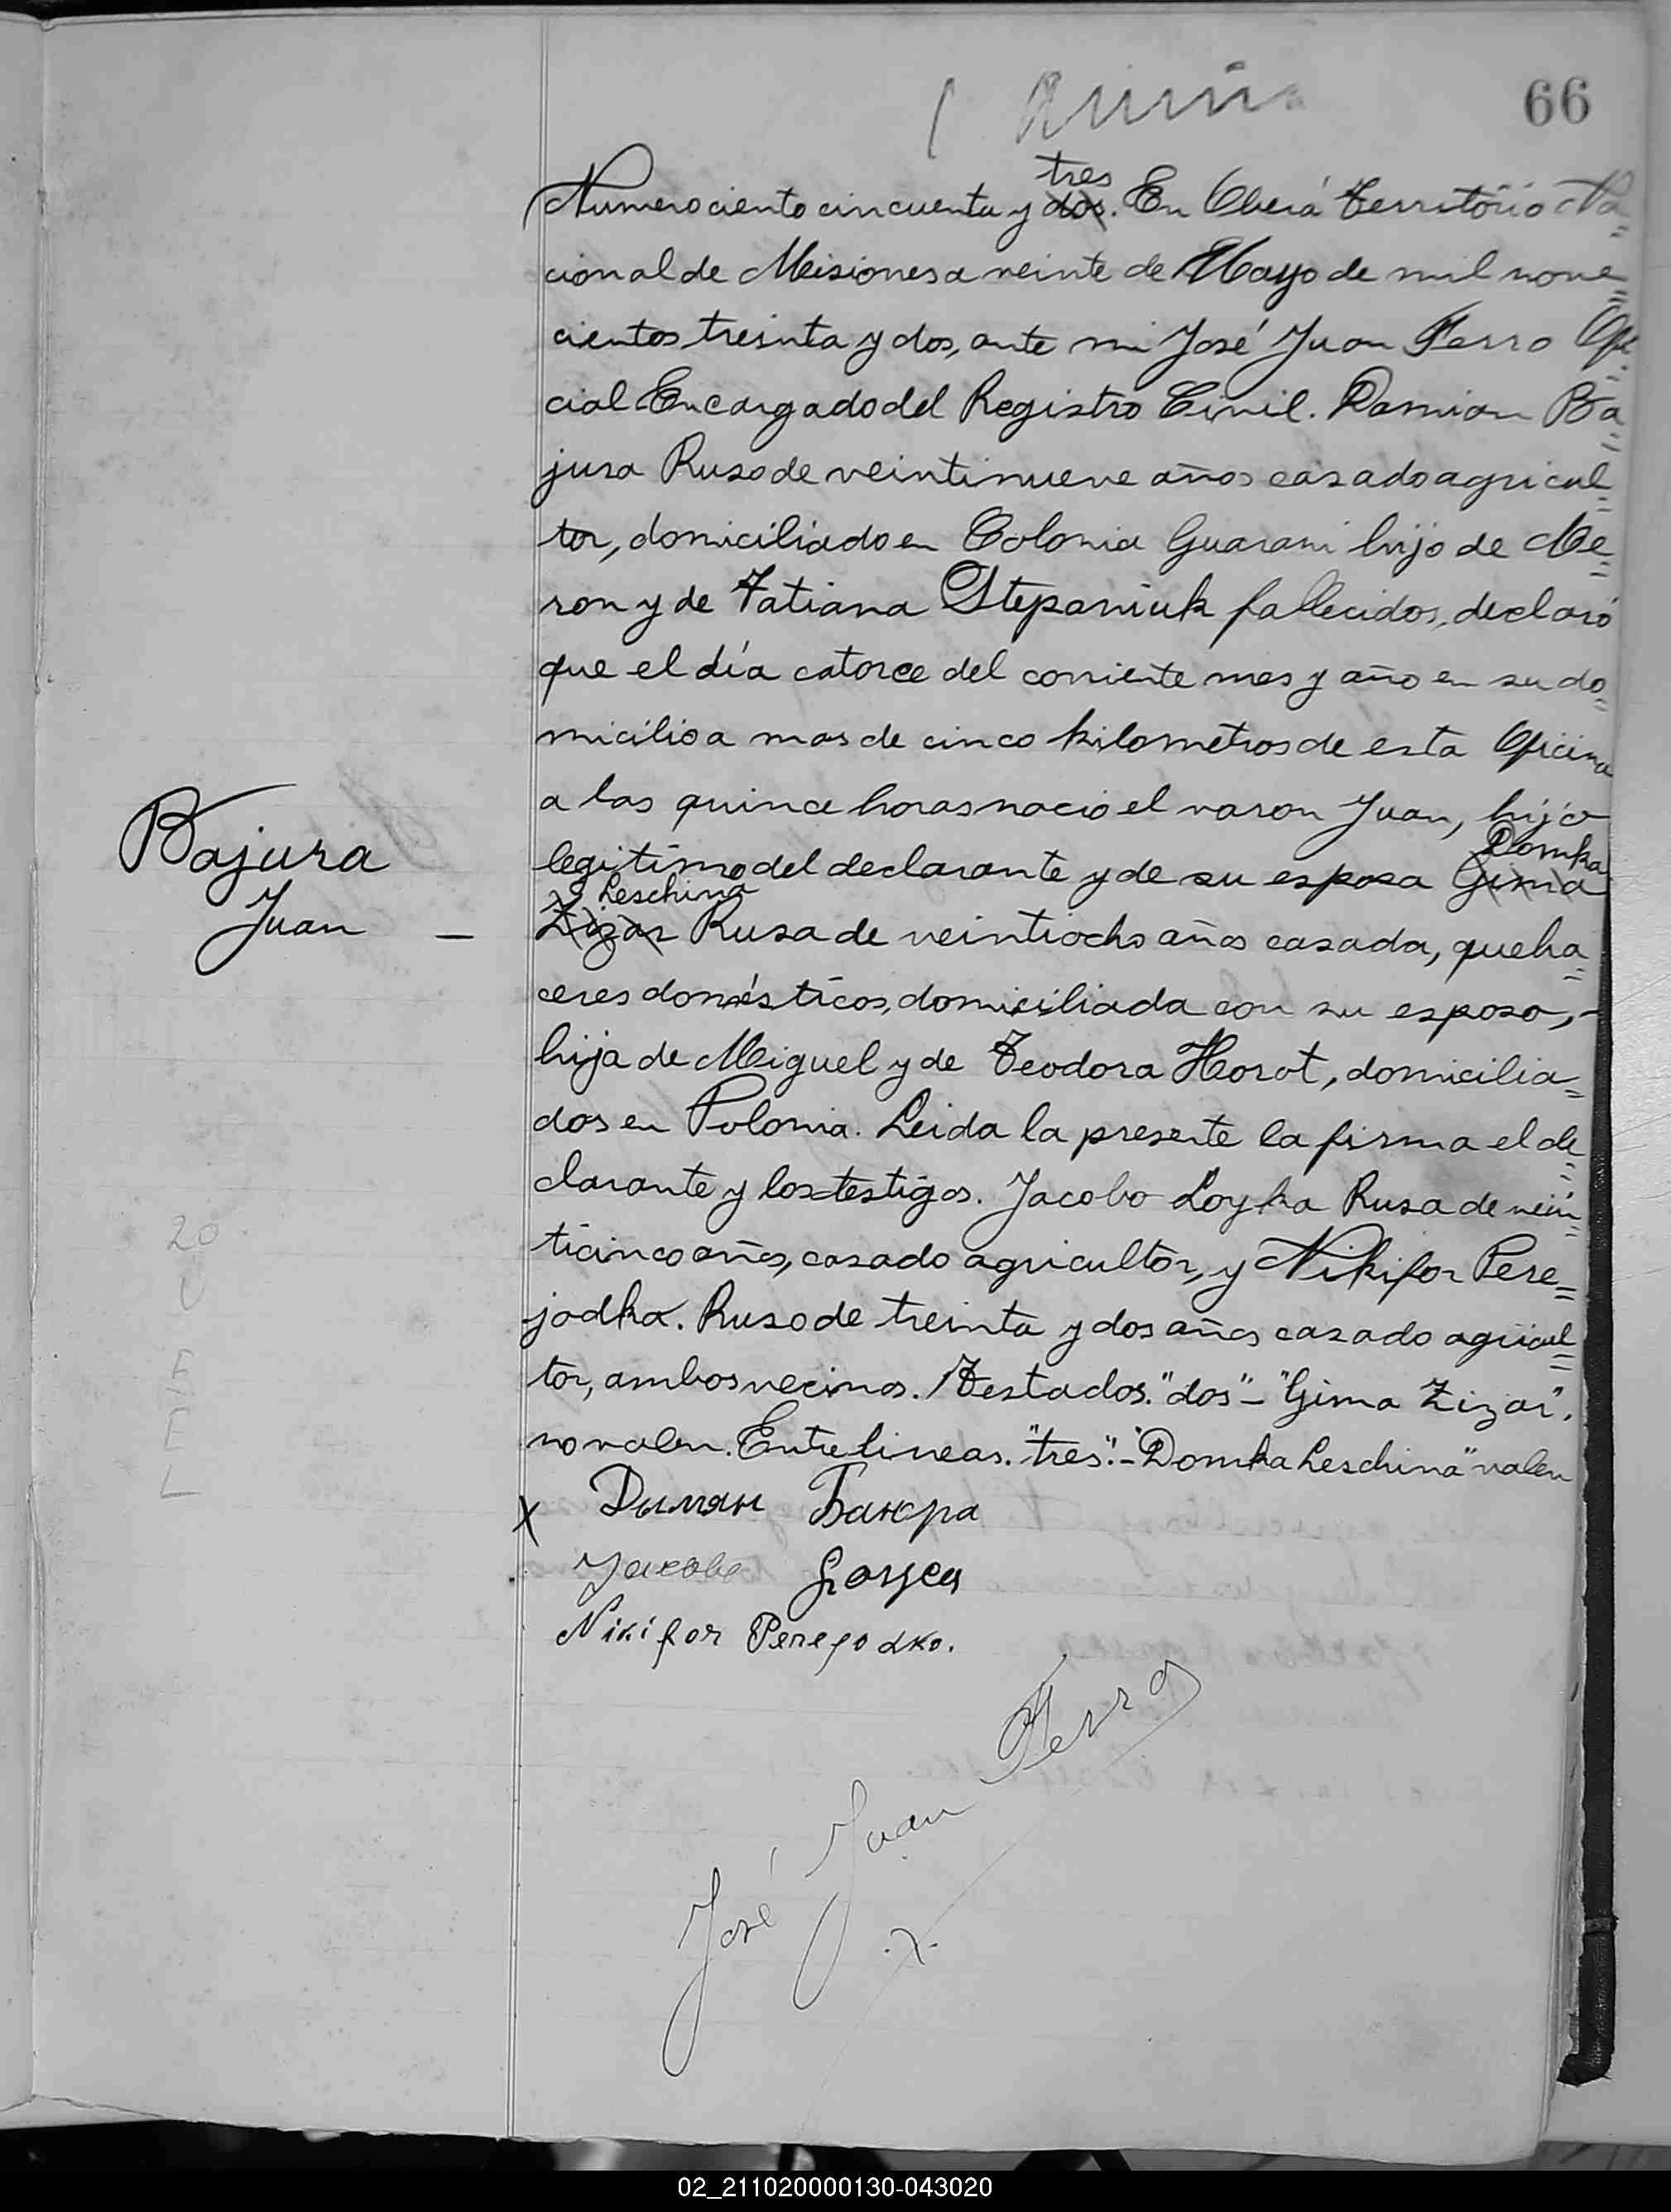 66
tres
Numero ciento cincuenta y dos. En Oberá Territorio Na=
cional de Misiones a veinte de Mayo de mil nove=
cientos treinta y dos, ante mi José Juan Ferro Ofi=
cial Encargado del Registro Civil. Damian Ba=
jura Ruso de veintinueve años casado agricul=
tor, domiciliado en Colonia Guarani hijo de Me=
ron y de Tatiana Stepaniuk fallecidos, declaró
que el día catorce del corriente mes y año en su do=
micilio a mas de cinco kilometros de esta Oficina
a las quince horas nacio el varon Juan, hijo
Domka
legitimo del declarante y de su esposa Gima
Leschina
Zizar Rusa de veintiocho años casada, queha=
Bajura
Juan —
ceres domésticos, domiciliada con su esposo,-
hija de Miguel y de Teodora Horot, domicilia=
dos en Polonia. Leida la presente la firma el de=
clarante y los testigos. Jacobo Loyka Rusa de vein=
ticinco años, casado agricultor, y Nikifor Pere=
jodka. Ruso de treinta y dos años casado agricul=
tor, ambos vecinos. Testados. "dos"- "Gima Zizar".
no valen. Entre lineas. "tres".- "Domka Leschina" valen
20
E
E
L
x Дамян
Nikifor Perejodko.
José Juan Ferro
02_211020000130-043020